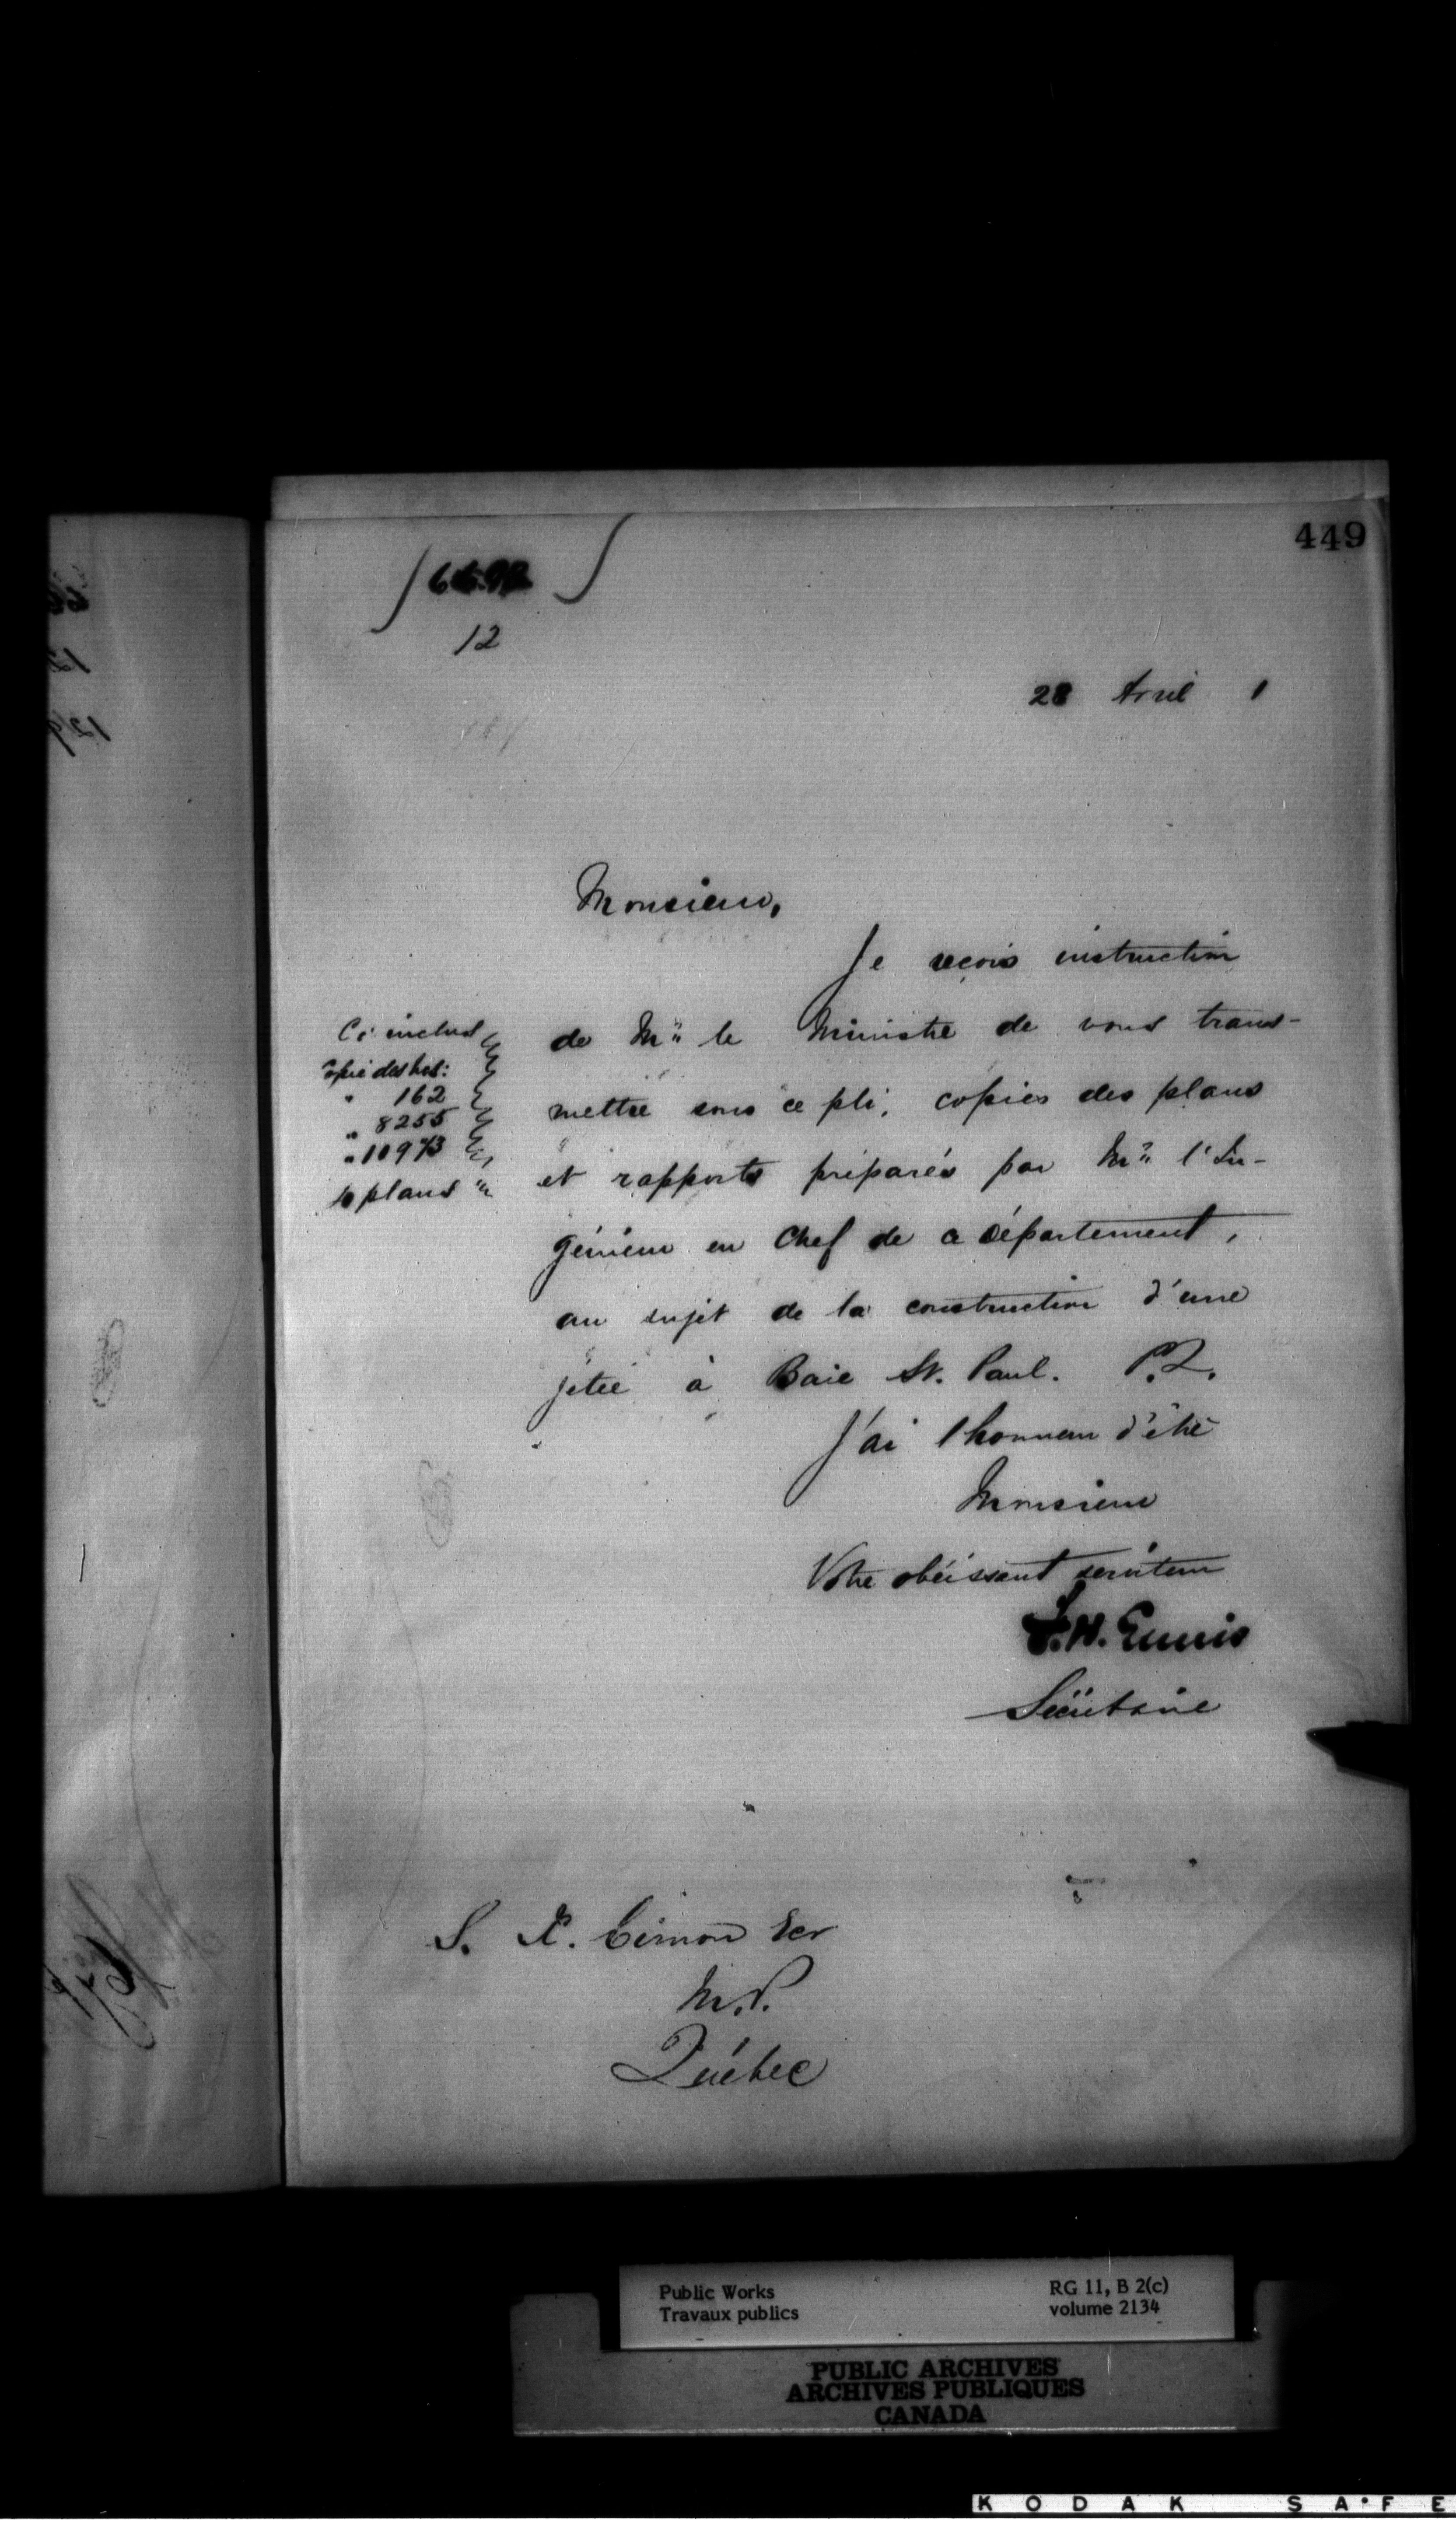 449
12
28 Avril 1
Monsieur,
Je reçois instruction
de Mr le Ministre de vous trans-
mettre sous ce pli, copies des plans
et rapports préparés par Mr l'In-
génieur en Chef de ce Département,
au sujet de la construction d'une
jetée à Baie St. Paul. P.Q.
J'ai l'honneur d'être
Monsieur
Votre obéissant serviteur
F.H. Ennis
Secrétaire
Ci inclus
Copie des Nos:
" 162
" 8255
" 10973
plans
S. X. Cimon Ecr
M.P.
Québec
Public Works
Travaux publics
RG 11, B 2(c)
volume 2134
PUBLIC ARCHIVES
ARCHIVES PUBLIQUES
CANADA
KODAK SAFE